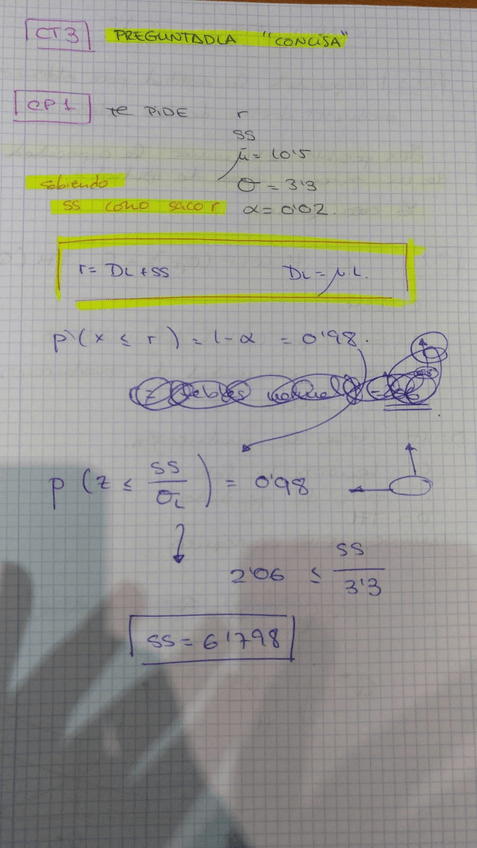 CT3 PREGUNTADLA "CONCISA"
CP1 te PIDE r
SS
μ = 10'5
sabiendo σ = 3'3
SS como saco r α = 0'02
r = DL + SS DL = μ L.
p (x ≤ r) = 1 - α = 0'98.
p (z ≤ SS / σL) = 0'98
2'06 ≤ SS / 3'3
SS = 6'798